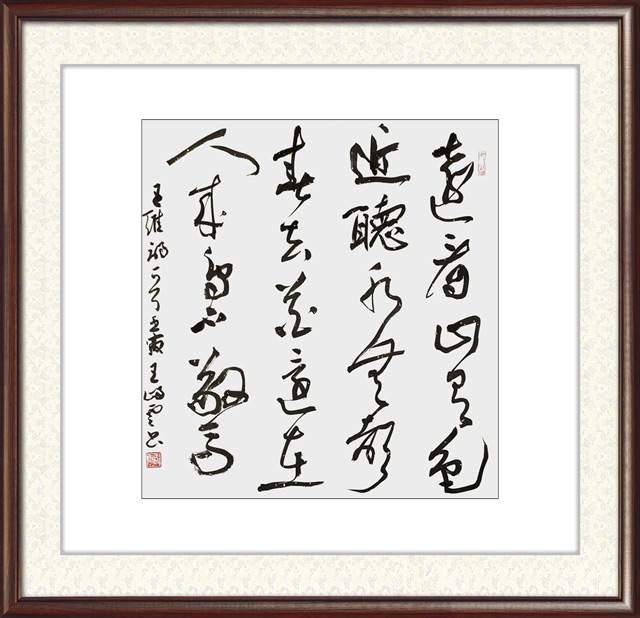 遠看山有色
近聽水無聲
春去花還在
人來鳥不驚
王維詩一首壬寅王雲书